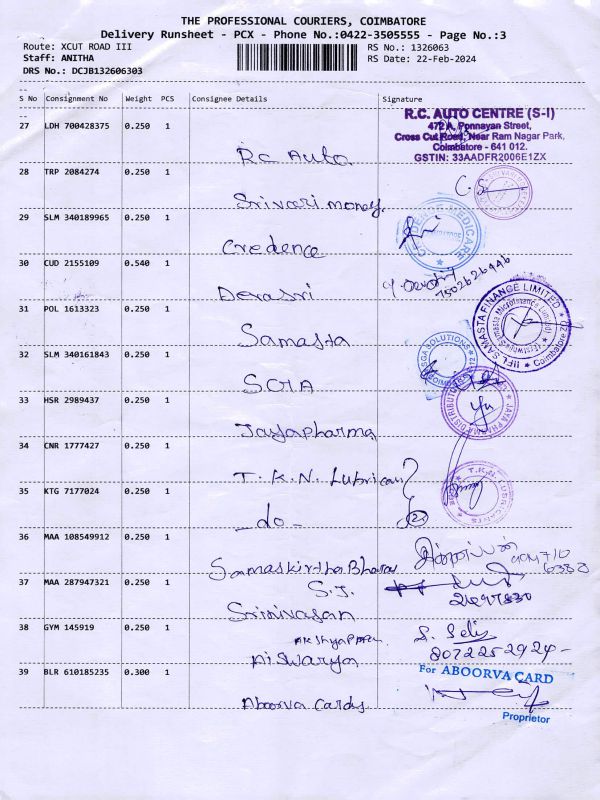 THE PROFESSIONAL COURIERS, COIMBATORE
Delivery Runsheet - PCX - Phone No.:0422-3505555 - Page No.:3
Route: XCUT ROAD III
RS No.: 1326063
Staff: ANITHA
RS Date: 22-Feb-2024
DRS No.: DCJB132606303
S No Consignment No Weight PCS Consignee Details Signature
R.C. AUTO CENTRE (S-I)
27 LDH 700428375 0.250 1
472 A, Ponnayan Street,
Cross Cut Road, Near Ram Nagar Park,
Coimbatore - 641 012.
GSTIN: 33AADFR2006E1ZX
Rc Auto
28 TRP 2084274 0.250 1
Srivari money
29 SLM 340189965 0.250 1
CREDENCE MEDICARE
Credence
30 CUD 2155109 0.540 1
7502626446
Devasri
31 POL 1613323 0.250 1
IIFL SAMASTA FINANCE LIMITED
Samasta
32 SLM 340161843 0.250 1
SGA SOLUTIONS
SGIA
33 HSR 2989437 0.250 1
JAYA PHARMA DISTRIBUTORS
Jayapharma
34 CNR 1777427 0.250 1
T.K.N. LUBRICANTS
T.K.N. Lubrican
35 KTG 7177024 0.250 1
-do-
2
36 MAA 108549912 0.250 1
Samaskirtha Bharai
37 MAA 287947321 0.250 1
S.J.
Srinivasan
38 GYM 145919 0.250 1
S. Selis
8072252924-
Aiswarya
39 BLR 610185235 0.300 1
For ABOORVA CARD
Aboorva Cards
Proprietor